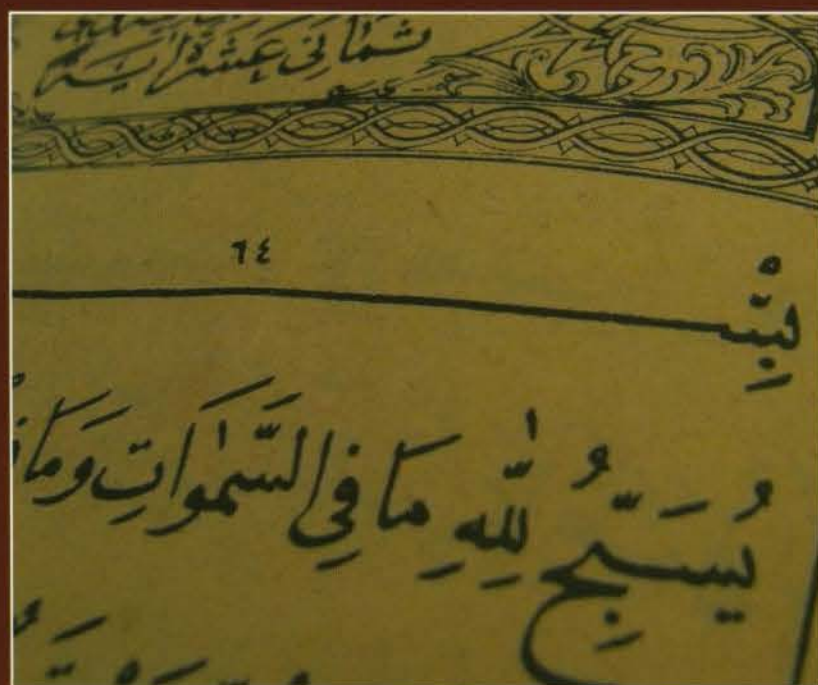 ثماني عشرة آية
٦٤
بِسْـ
يُسَبِّحُ لِلّٰهِ مَا فِي السَّمٰوَاتِ وَمَا